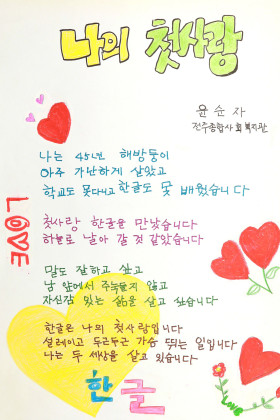 나의 첫사랑
윤순자
전주종합사회복지관
나는 45년 해방둥이
아주 가난하게 살았고
학교도 못다니고 한글도 못 배웠습니다
첫사랑 한글을 만났습니다
하늘로 날아 갈 것 같았습니다
말도 잘하고 싶고
남 앞에서 주눅들지 않고
자신감 있는 삶을 살고 싶습니다
한글은 나의 첫사랑입니다
설레이고 두근두근 가슴 뛰는 일입니다
나는 두 세상을 살고 있습니다
한글
LOVE